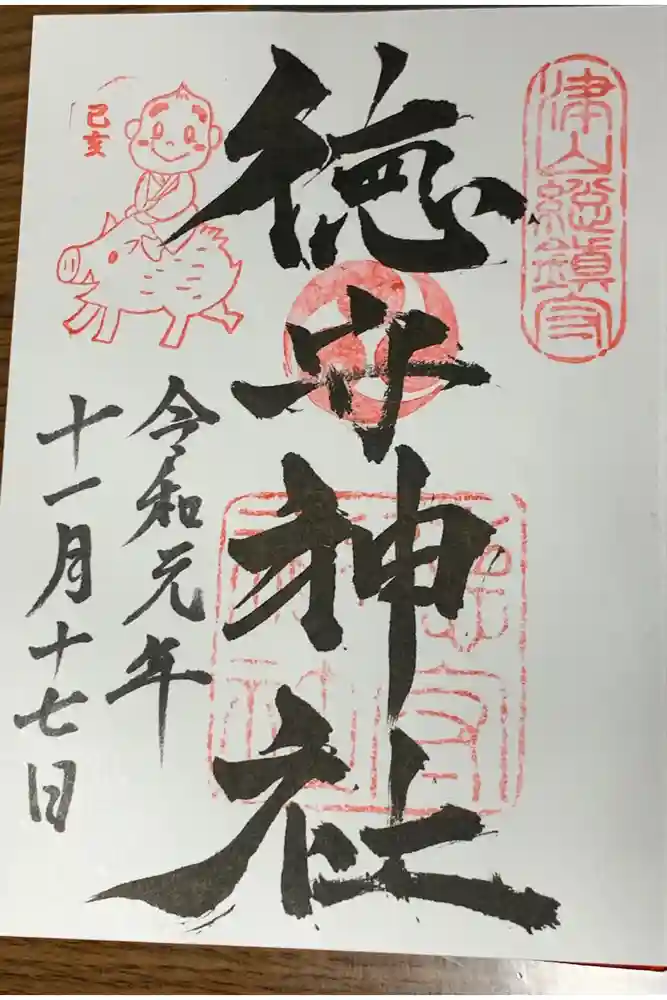 津山總鎮守
徳守神社
令和元年
十一月十七日
己亥